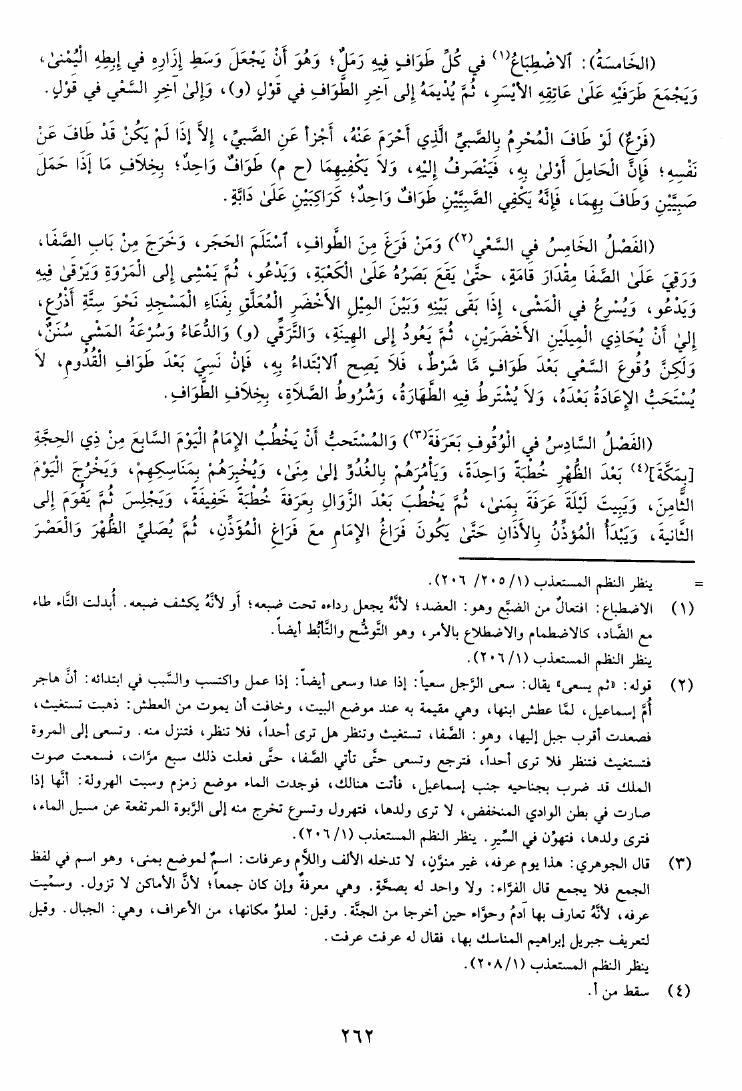 (الخَامسَةُ): الاضْطِبَاعُ(١) في كُلِّ طَوَافٍ فِيهِ رَمَلٌ؛ وَهُوَ أَنْ يَجْعَلَ وَسَطَ إِزَارِهِ في إبطِهِ الْيُمْنىٰ،
وَيَجْمَعَ طَرَفَيْهِ عَلىٰ عَاتِقِهِ الأَيْسَرِ، ثُمَّ يُدْيمَهُ إِلى آخِرِ الطَّوَافِ في قَوْلٍ (و)، وَإلىٰ آخِرِ السَّعْيِ في قَوْلٍ.
(فَرْعٌ) لَوْ طَافَ الْمُحْرِمُ بِالصَّبيِّ الَّذِي أَحْرَمَ عَنْهُ، أَجْزأ عَنِ الصَّبيِّ، إِلاَّ إِذَا لَمْ يَكُنْ قَدْ طَافَ عَنْ
نَفْسِهِ؛ فَإِنَّ الْحَامِلَ أَوْلىٰ بِهِ، فَيَنْصَرفُ إِلَيْهِ، وَلاَ يَكْفِيهِمَا (ح م) طَوَافٌ وَاحِدٌ؛ بِخِلَافِ مَا إِذَا حَمَلَ
صَبِيَّيْنِ وَطَافَ بِهِمَا، فَإِنَّهُ يَكْفِي الصَّبِيَّيْنِ طَوَافٌ وَاحِدٌ؛ كَرَاكِبَيْنِ عَلىٰ دَابَّةٍ.
(الفَصْلُ الخَامِسُ في السَّعْي(٢) وَمَنْ فَرَغَ مِنَ الطَّوافِ، اسْتَلَمَ الحَجَرَ، وَخَرَجَ مِنْ بَابِ الصَّفَا،
وَرَقِيَ عَلَىٰ الصَّفَا مِقْدَارَ قَامَةٍ، حتَّى يَقَعَ بَصَرُهُ عَلىٰ الكَعْبَةِ، وَيَدْعُو، ثُمَّ يَمْشِى إلى المَرْوَةِ وَيَرْقىٰ فِيهِ
وَيَدْعُو، وَيُسْرعُ في المَشْى، إِذَا بَقى بَيْنِه وَبَيْنَ المِيْلِ الأَخْضَرِ الْمُعَلَّقِ بِفَنَاءِ الْمَسْجِدِ نَحْوَ سِتَّةِ أَذْرُعٍ،
إِليٰ أَنْ يُحَاذِي المِيلَيْنِ الأَخْضَرَيْنِ، ثُمَّ يَعُودُ إِلى الهِينَةِ، وَالتَّرَقِّي (و) وَالدُّعَاءُ وَسُرْعَةُ المَشْي سُنَنٌ،
وَلَكِنَّ وُقُوعَ السَّعْي بَعْدَ طَوافٍ مَّا شَرْطٌ، فَلَا يَصِح الابْتِدَاءُ بِهِ، فَإِنْ نَسِيَ بَعْدَ طَوَافِ القُدُومِ، لاَ
يُسْتَحَبُّ الإِعَادَةُ بَعْدَهُ، وَلاَ يُشْتَرطُ فِيهِ الطَّهَارَةُ، وَشُرُوطُ الصَّلاَةِ، بِخِلَافِ الطَّوَافِ.
(الفَصْلُ السَّادِسُ في الْوُقُوفِ بَعَرفَةَ(٣) وَالمُسْتَحبُّ أَنْ يَخْطُبَ الإِمَامُ اليَوْمَ السَّابِعَ مِنْ ذِي الحِجَّةِ
[بِمَكَّةَ](٤) بَعْدَ الظُّهْرِ خُطْبَةً وَاحِدَةً، وَيَأْمُرَهُمْ بِالغُدُوِّ إِلىٰ مِنَىٰ، وَيُخْبِرَهُمْ بِمَنَاسِكِهِمْ، وَيَخْرُجَ الْيَوْمَ
الثَّامِنَ، وَيَبِيتَ لَيْلَةَ عَرَفَةَ بِمَنىٰ، ثُمَّ يَخْطُبَ بَعْدَ الزَّوَالِ بِعَرفَةَ خُطْبَةً خَفِيفَةً، وَيَجْلِسَ ثُمَّ يَقُوَمَ إِلى
الثَّانِيةَ، وَيَبْدَأَ الْمُؤذِّنُ بِالأَذَانِ حَتَّى يَكُونَ فَرَاغُ الإِمَامِ معَ فَرَاغِ الْمُؤَذِّنِ، ثُمَّ يُصَليِّ الظُّهْرَ وَالْعَصْرَ
= ينظر النظم المستعذب (١/ ٢٠٥/ ٢٠٦).
(١) الاضطباع: افتعالٌ من الضبَّع وهو: العضد؛ لأنَّهُ يجعل رداءه تحت ضبعه؛ أو لأنَّهُ يكشف ضبعه. أُبدلت التَّاء طاء
مع الضَّاد، كالاضطمام والاضطلاع بالأمر، وهو التَّوشُّح والتَّأبُّط أيضاً.
ينظر النظم المستعذب (٢٠٦/١).
(٢) قوله: «ثم يسعى» يقال: سعى الرَّجل سعياً: إذا عدا وسعى أيضاً: إذا عمل واكتسب والسَّبب في ابتدائه: أنَّ هاجر
أُمَّ إسماعيل، لمَّا عطش ابنها، وهي مقيمة به عند موضع البيت، وخافت أن يموت من العطش: ذهبت تستغيث،
فصعدت أقرب جبل إليها، وهو: الصَّفا، تستغيث وتنظر هل ترى أحداً، فلا تنظر، فتنزل منه. وتسعى إلى المروة
فتستغيث فتنظر فلا ترى أحداً، فترجع وتسعى حتَّى تأتي الصَّفا، حتَّى فعلت ذلك سبع مرَّات، فسمعت صوت
الملك قد ضرب بجناحيه جنب إسماعيل، فأتت هنالك، فوجدت الماء موضع زمزم وسبت الهرولة: أنَّها إذا
صارت في بطن الوادي المنخفض، لا ترى ولدها، فتهرول وتسرع تخرج منه إلى الرَّبوة المرتفعة عن مسيل الماء،
فترى ولدها، فتهوِّن في السَّير. ينظر النظم المستعذب (٢٠٦/١).
(٣) قال الجوهري: هذا يوم عرفه، غير منوَّن، لا تدخله الألف واللَّام وعرفات: اسمٌ لموضع بمنى، وهو اسم في لفظ
الجمع فلا يجمع قال الفرَّاء: ولا واحد له بصحَّةٍ. وهي معرفةٌ وإن كان جمعاً؛ لأنَّ الأماكن لا تزول. وسمِّيت
عرفه، لأنَّهُ تعارف بها آدمُ وحوَّاء حين أخرجا من الجنَّة. وقيل: لعلوِّ مكانها، من الأعراف، وهي: الجبال. وقيل
لتعريف جبريل إبراهيم المناسك بها، فقال له عرفت عرفت.
ينظر النظم المستعذب (٢٠٨/١).
(٤) سقط من أ.
٢٦٢